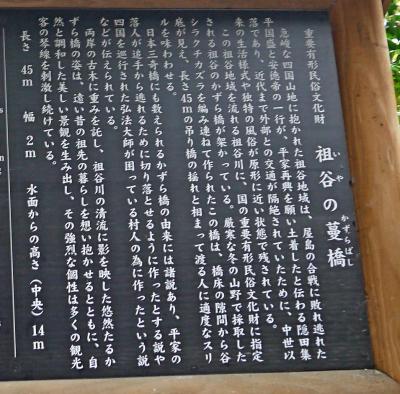 重要有形民俗文化財
祖谷の蔓橋
いや　かずらばし
急峻な四国山地に抱かれた祖谷地域は、屋島の合戦に敗れ逃れた
平国盛と安徳帝の一行が、平家再興を願い土着したと伝わる隠田集
落であり、近代まで外部との交通が隔絶されていたために、中世以
来の生活様式や独特の風俗が原形に近い状態で残されている。
この祖谷地域を流れる祖谷川に、国の重要有形民俗文化財に指定
される祖谷のかずら橋が架かっている。厳寒な冬の山野で採取した
シラクチカズラを編み連ねて作られたこの橋は、橋床の隙間から谷
底が見え、長さ45mの吊り橋の揺れと相まって渡る人に適度なスリ
ルを味わわせる。
日本三奇橋にも数えられるかずら橋の由来には諸説あり、平家の
落人が追手から逃れるために切り落とせるように作ったとする説や
四国を巡行された弘法大師が困っている村人の為に作ったという説
などが伝えられている。
両岸の古木に重みを託し、祖谷川の清流に影を映した悠然たるか
ずら橋の姿は、遠い昔の祖先の暮らしを想い抱かせるとともに、自
然と調和した美しい景観を生み出し、その強烈な個性は多くの観光
客の琴線を刺激し続けている。
長さ 45m 幅 2m 水面からの高さ（中央）14m